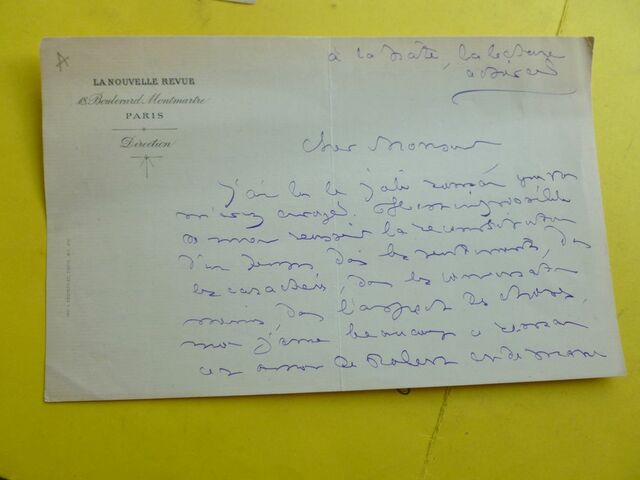 à la hâte, la lecture
achevée
LA NOUVELLE REVUE
18, Boulevard Montmartre
PARIS
Direction
Cher Monsieur,
J'ai lu le joli roman que vous
m'avez envoyé. Il est impossible
de mieux réussir la reconstitution
d'un temps, dans les sentiments, dans
les caractères, dans les conversations
mêmes, dans l'aspect des choses,
moi j'aime beaucoup ce roman
ces amours de Robert et de